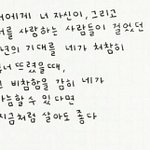 너에게 너 자신이, 그리고
너를 사랑하는 사람들이 걸었던
년의 기대를 네가 처참히
뜨렸을때,
비참함을 감히 네가
할 수 있다면
지금처럼 살아도 좋다